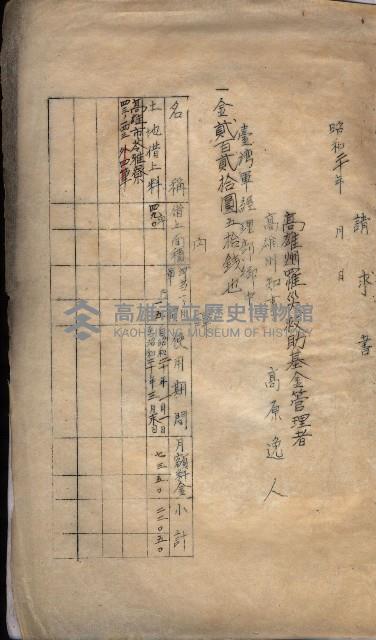 請求書
昭和二十年 月 日
高雄州罹災救助基金管理者
高雄州知事 高原逸人
臺灣軍經理部御中
一金貳百貳拾圓五拾錢也
內
名稱 借上面積 單 使用期間 月額料金 小計
土地借上料 四九〇 自昭和二十年一月一日 至昭和二十年三月末日 七三五〇 二二〇五〇
高雄市苓雅寮
外四筆
高雄市立歷史博物館
KAOHSIUNG MUSEUM OF HISTORY